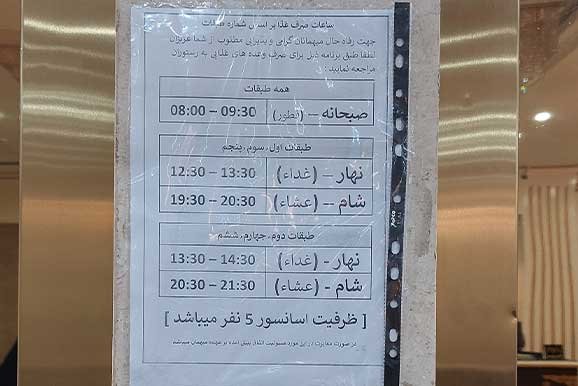 ساعات صرف غذا بر اساس شماره طبقات
جهت رفاه حال میهمانان گرامی و پذیرایی مطلوب از شما عزیزان
لطفا طبق برنامه ذیل برای صرف وعده های غذایی به رستوران
مراجعه نمایید :
همه طبقات
صبحانه – (فطور) 08:00 – 09:30
طبقات اول، سوم، پنجم
نهار – (غداء) 12:30 – 13:30
شام – (عشاء) 19:30 – 20:30
طبقات دوم، چهارم، ششم
نهار - (غداء) 13:30 – 14:30
شام - (عشاء) 20:30 – 21:30
[ ظرفیت آسانسور 5 نفر میباشد ]
در صورت مغایرت در این مورد مسئولیت اتفاق پیش آمده بر عهده میهمان میباشد